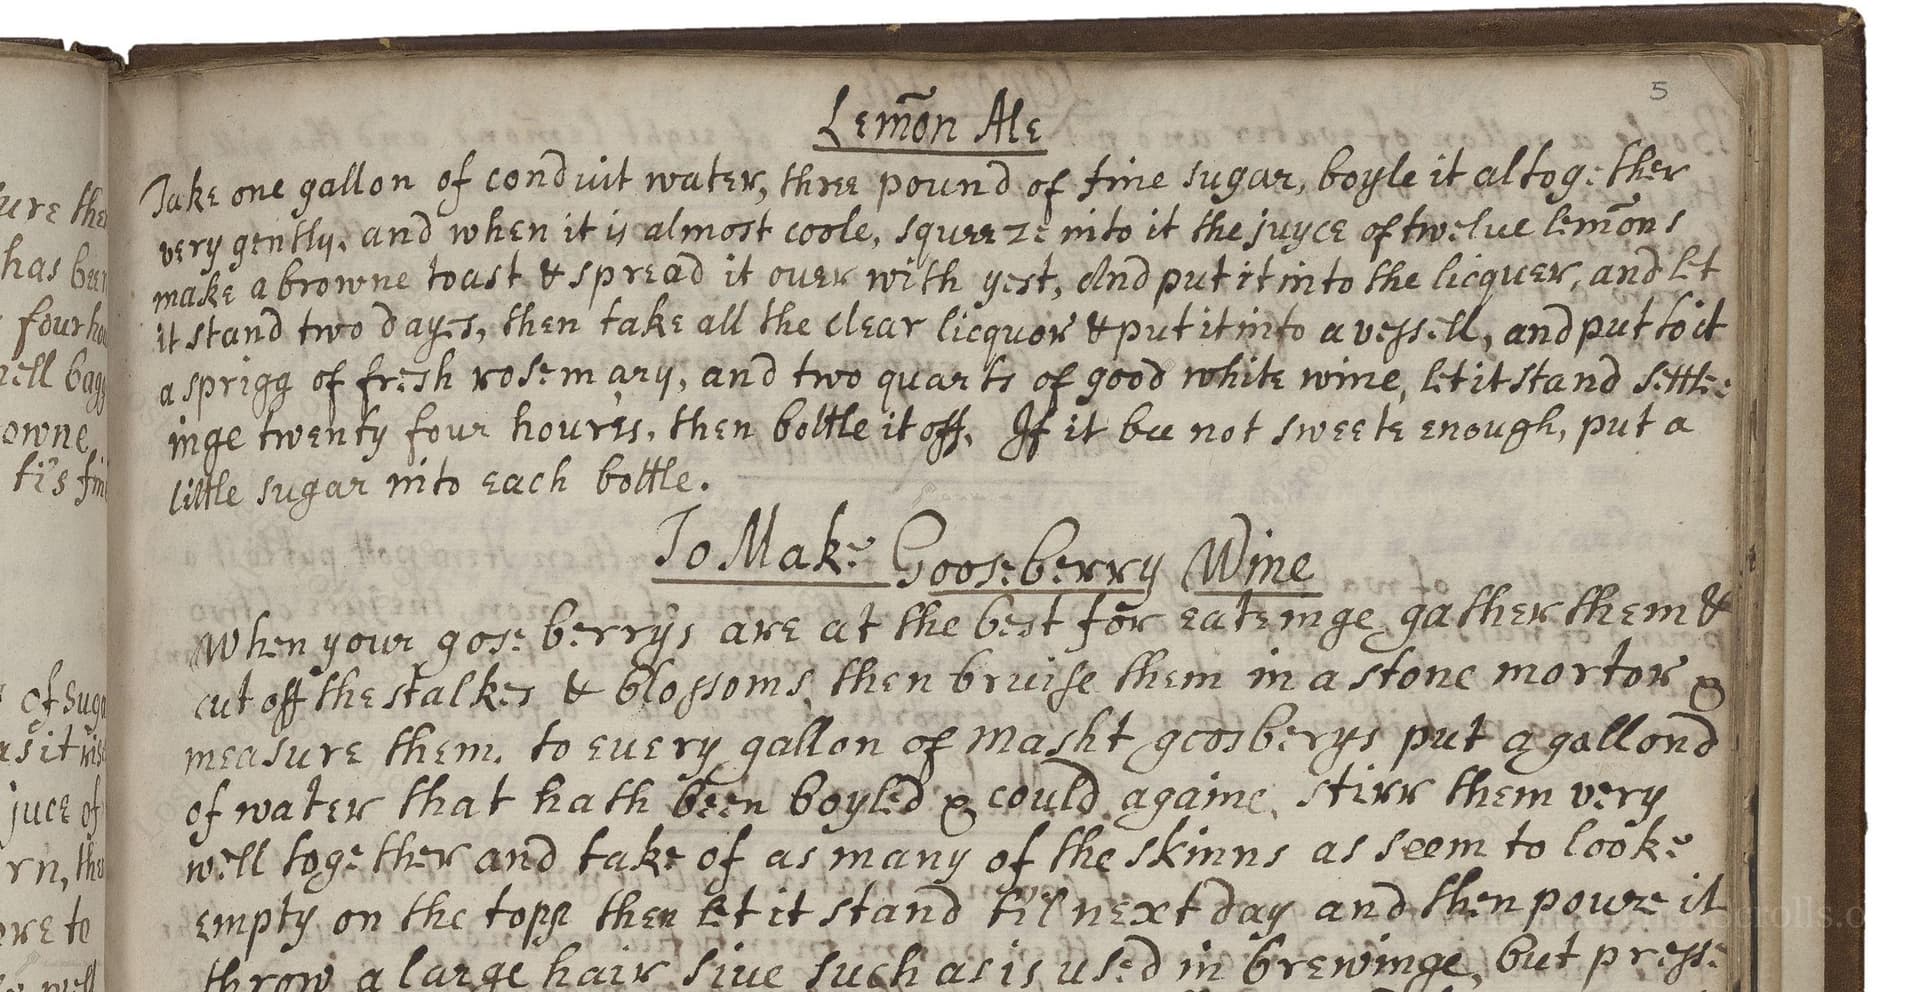 5
Lem̃on Ale
Take one gallon of conduit water, three pound of fine sugar, boyle it altogether
very gently, and when it is almost coole, squeeze into it the juyce of twelue lem̃ons
make a browne toast & spread it ouer with yest, And put it into the licquer, and let
it stand two dayes, then take all the clear licquor & put it into a vessell, and put to it
a sprigg of fresh rosemary, and two quarts of good white wine, let it stand settle=
inge twenty four houres, then bottle it off. If it bee not sweete enough, put a
little sugar into each bottle.
To Make Gooseberry Wine
When your goseberrys are at the best for eateinge gather them &
cut off the stalkes & blossoms, then bruise them in a stone mortor &
measure them. to euery gallon of masht goosberys put a gallond
of water that hath been boyled & could againe, stirr them very
well together and take of as many of the skinns as seem to looke
empty on the topp then let it stand til next day and then poure it
throw a large hair siue such as is used in brewinge, but presse
ure the
has been
four ho
nell bagg
owne,
ti's fin
of Suga
as it ris
juce of
rn, the
ore to
well